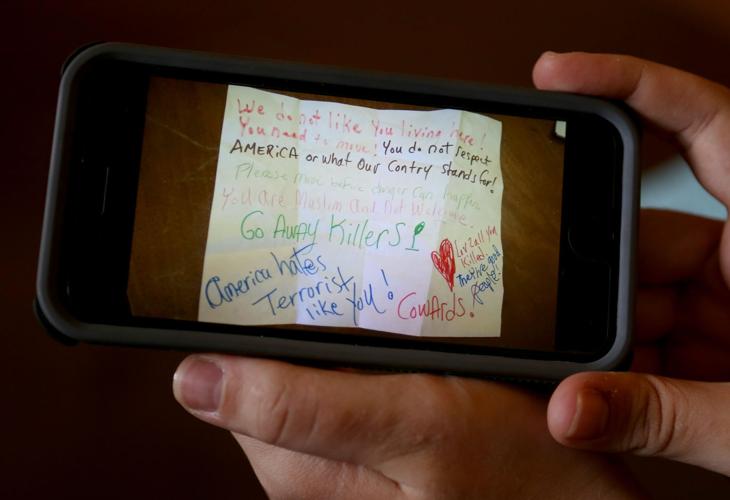 We do not like you living here!
You need to move! You do not respect
AMERICA or what our Contry stands for!
Please move before danger can happen
You Are Muslim and Not Welcome.
Go Away Killers!
America hates
Terrorist
like you!
Cowards!
all you
Killed
They're good
people!